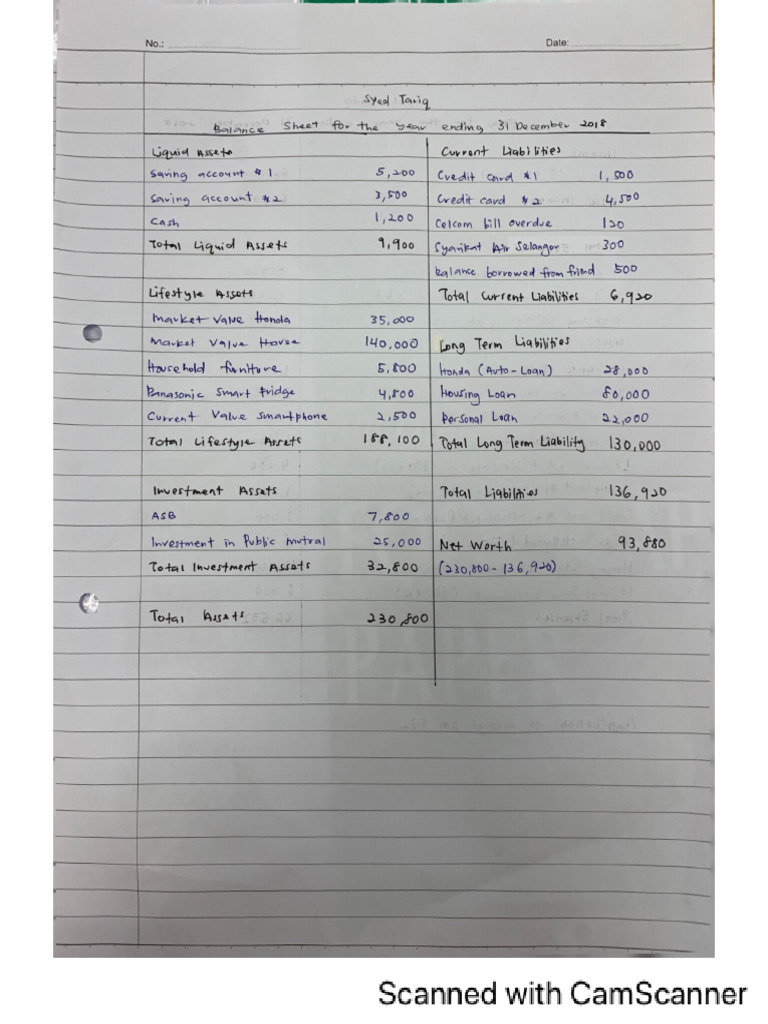 No.:
Date:
Syed Tariq
Balance Sheet for the year ending 31 December 2018
Liquid Assets
Saving account #1 5,200
Saving account #2 3,500
Cash 1,200
Total Liquid Assets 9,900
Lifestyle Assets
Market Value Honda 35,000
Market Value House 140,000
Household furniture 5,800
Panasonic Smart Fridge 4,800
Current Value smartphone 2,500
Total Lifestyle Assets 188,100
Investment Assets
ASB 7,800
Investment in Public mutual 25,000
Total Investment Assets 32,800
Total Assets 230,800
Current Liabilities
Credit card #1 1,500
Credit card #2 4,500
Celcom bill overdue 120
Syarikat Air Selangor 300
balance borrowed from friend 500
Total Current Liabilities 6,920
Long Term Liabilities
Honda (Auto-Loan) 28,000
Housing Loan 80,000
Personal Loan 22,000
Total Long Term Liability 130,000
Total Liabilities 136,920
Net Worth 93,880
(230,800 - 136,920)
Scanned with CamScanner